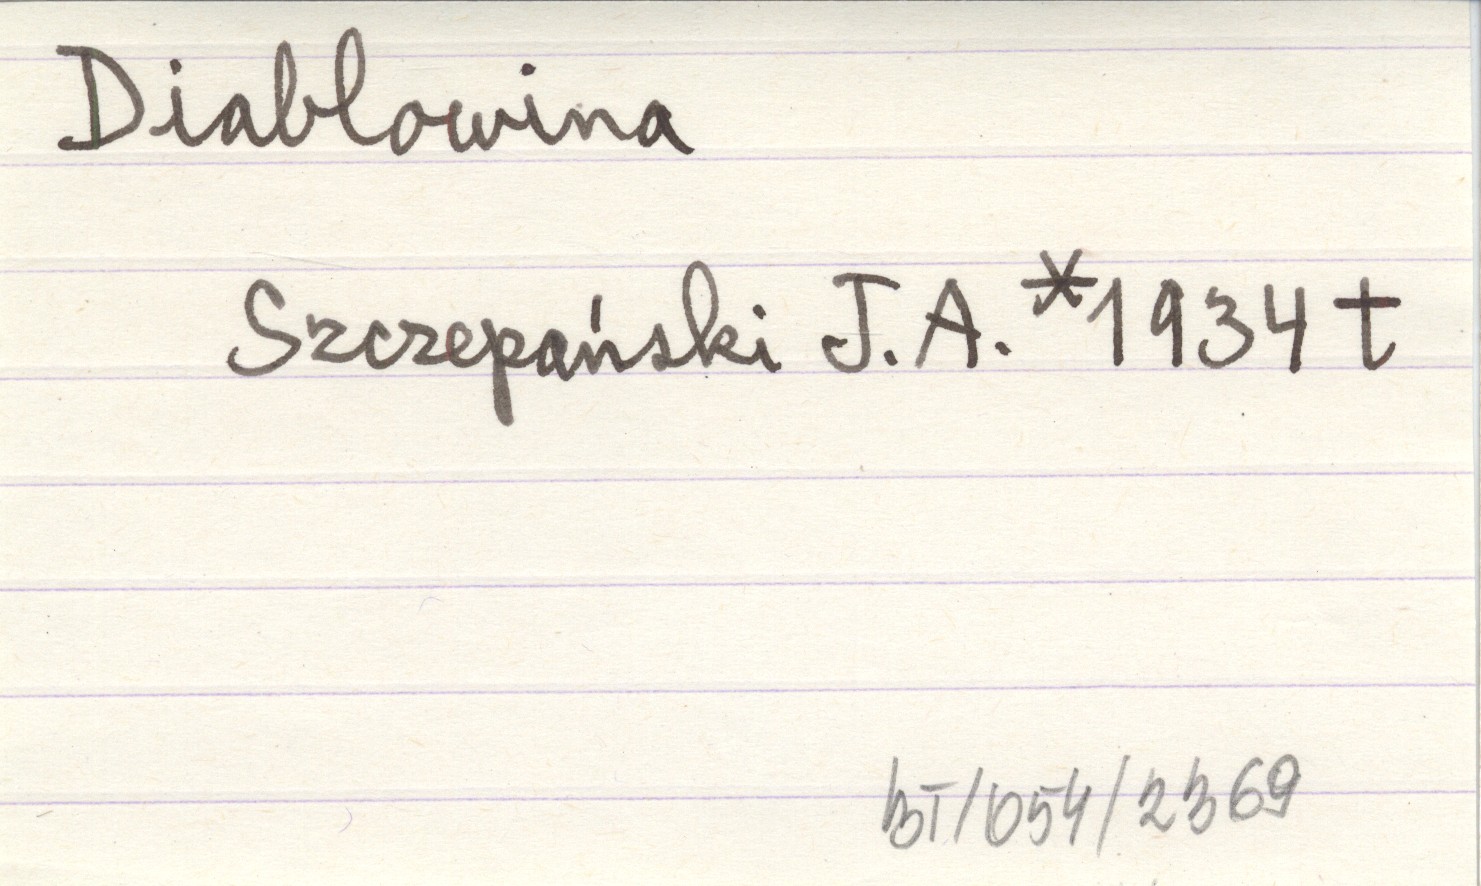 Diablowina
Szczepański J.A. *1934 t
BT/054/2369